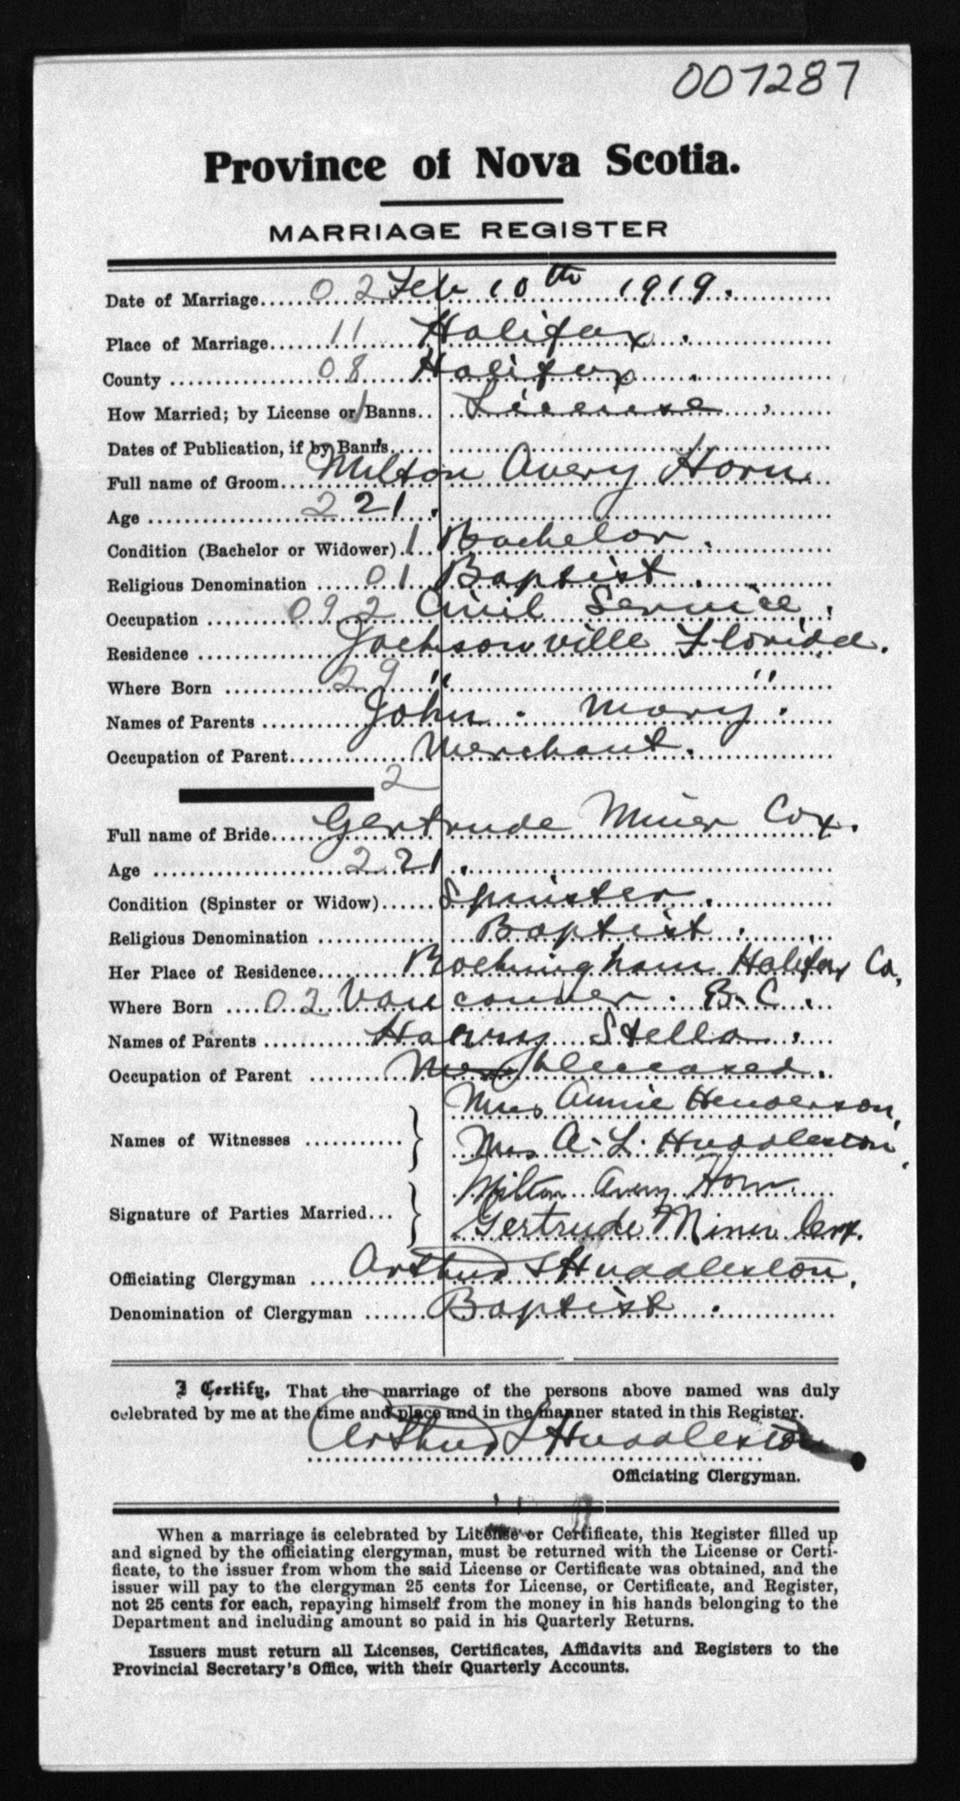 007287
Province of Nova Scotia.
MARRIAGE REGISTER
Date of Marriage..... 02 Feb 10th 1919.
Place of Marriage..... 11 Halifax.
County ..... 08 Halifax.
How Married; by License or Banns.. 1 License.
Dates of Publication, if by Banns.....
Full name of Groom.... Milton Avery Horn
Age ..... 2 21.
Condition (Bachelor or Widower).. 1 Bachelor.
Religious Denomination ..... 01 Baptist.
Occupation ..... 092 Civil Service.
Residence ..... Jacksonville Florida.
Where Born ..... 29 " "
Names of Parents ..... John. Mary.
Occupation of Parent..... Merchant.
2
Full name of Bride.... Gertrude Miner Cox.
Age ..... 2 21.
Condition (Spinster or Widow)..... Spinster.
Religious Denomination ..... Baptist.
Her Place of Residence..... Halifax Co,
Where Born .... 02 Vancouver. B.C.
Names of Parents ..... Harry Stella.
Occupation of Parent ..... Deceased.
Mrs Annie Henderson,
Names of Witnesses ..... }
Mrs A. L. Huddleston,
Milton Avery Horn
Signature of Parties Married... }
Gertrude Miner Cox.
Officiating Clergyman .... Arthur L Huddleston,
Denomination of Clergyman ...... Baptist.
I Certify, That the marriage of the persons above named was duly
celebrated by me at the time and place and in the manner stated in this Register.
Arthur L Huddleston
Officiating Clergyman.
When a marriage is celebrated by License or Certificate, this Register filled up
and signed by the officiating clergyman, must be returned with the License or Certi-
ficate, to the issuer from whom the said License or Certificate was obtained, and the
issuer will pay to the clergyman 25 cents for License, or Certificate, and Register,
not 25 cents for each, repaying himself from the money in his hands belonging to the
Department and including amount so paid in his Quarterly Returns.
Issuers must return all Licenses, Certificates, Affidavits and Registers to the
Provincial Secretary's Office, with their Quarterly Accounts.